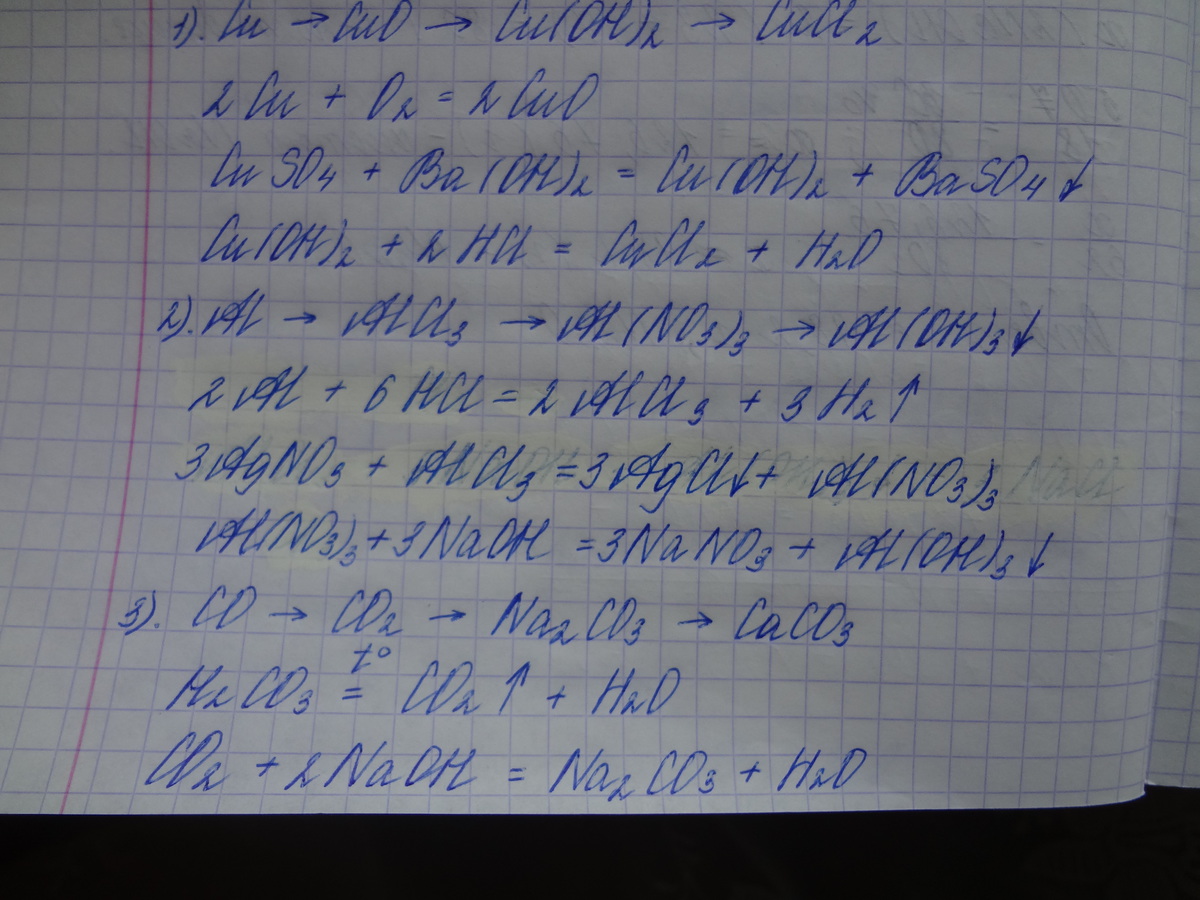 1). Cu → CuO → Cu(OH)2 → CuCl2
2Cu + O2 = 2CuO
CuSO4 + Ba(OH)2 = Cu(OH)2 + BaSO4↓
Cu(OH)2 + 2HCl = CuCl2 + H2O
2). Al → AlCl3 → Al(NO3)3 → Al(OH)3↓
2Al + 6HCl = 2AlCl3 + 3H2↑
3AgNO3 + AlCl3 = 3AgCl↓ + Al(NO3)3
Al(NO3)3 + 3NaOH = 3NaNO3 + Al(OH)3↓
3). CO → CO2 → Na2CO3 → CaCO3
t°
H2CO3 = CO2↑ + H2O
CO2 + 2NaOH = Na2CO3 + H2O